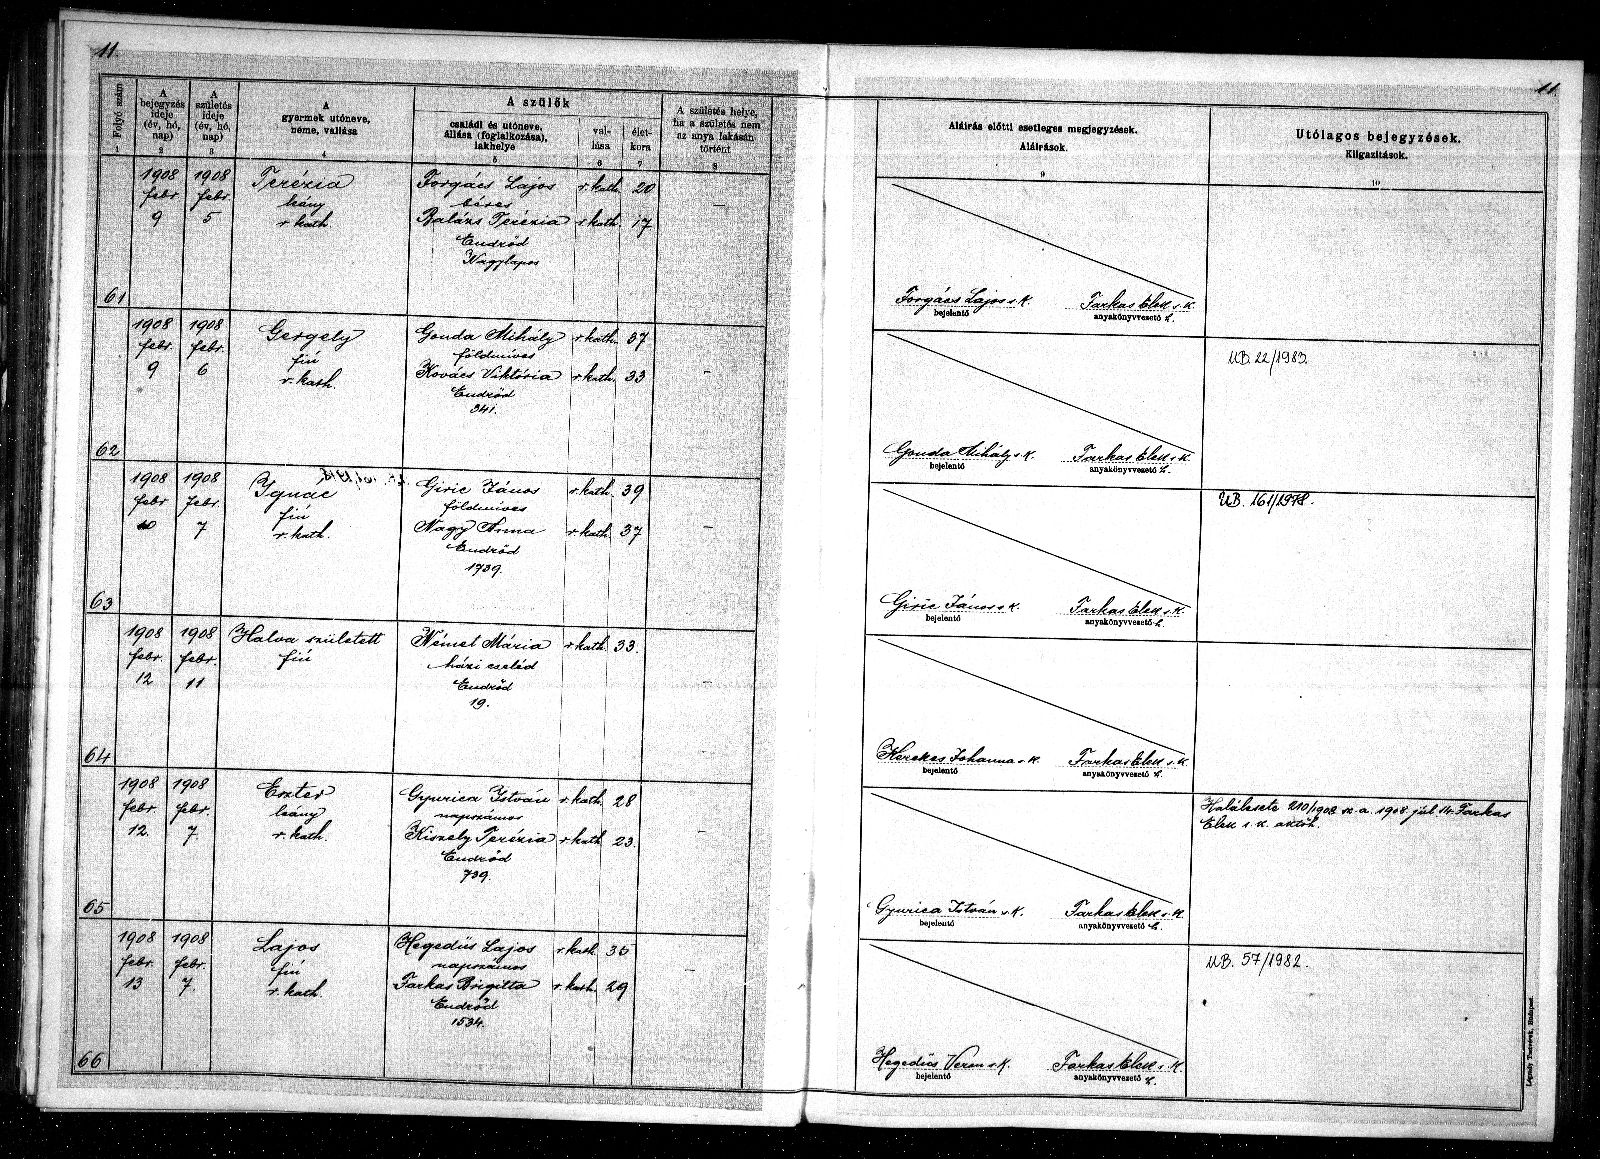 11.
11.
Folyó szám
A bejegyzés ideje (év, hó, nap)
A születés ideje (év, hó, nap)
A gyermek utóneve, neme, vallása
A szülők
családi és utóneve, állása (foglalkozása), lakhelye
val-lása
élet-kora
A születés helye, ha a születés nem az anya lakásán történt
Aláírás előtti esetleges megjegyzések.
Aláírások.
Utólagos bejegyzések.
Kiigazítások.
1 2 3 4 5 6 7 8 9 10
61
1908 febr 9
1908 febr 5
Terézia
leány
r. kath.
Forgács Lajos r. kath. 20
béres
Balázs Terézia r. kath. 17
Endrőd
Nagylapos
—
Forgács Lajos s. k.
bejelentő
Farkas Elek s. k.
anyakönyvvezető h.
62
1908 febr. 9
1908 febr. 6
Gergely
fiú
r. kath.
Gonda Mihály r. kath. 37
földmíves
Kovács Viktória r. kath. 33
Endrőd
341.
—
Gonda Mihály s. k.
bejelentő
Farkas Elek s. k.
anyakönyvvezető h.
UB. 22/1983.
63
1908 febr 10
1908 febr. 7
Ignác
fiú
r. kath.
Giric János r. kath. 39
földmíves
Nagy Anna r. kath. 37
Endrőd
1739.
—
Giric János s. k.
bejelentő
Farkas Elek s. k.
anyakönyvvezető h.
UB. 161/1978.
64
1908 febr. 12
1908 febr. 11
Halva született
fiú
Német Mária r. kath. 33.
házi cseléd
Endrőd
19.
—
Kerekes Johanna s. k.
bejelentő
Farkas Elek s. k.
anyakönyvvezető h.
65
1908 febr. 12.
1908 febr. 7.
Eszter
leány
r. kath.
Gyurica István r. kath. 28
napszámos
Kiszely Terézia r. kath. 23.
Endrőd
739.
—
Gyurica István s. k.
bejelentő
Farkas Elek s. k.
anyakönyvvezető h.
Halálesete 210/1908 sz. a. 1908 júl 14. Farkas
Elek s. k. aktöh.
66
1908 febr. 13
1908 febr. 7.
Lajos
fiú
r. kath.
Hegedűs Lajos r. kath. 35
napszámos
Farkas Brigitta r. kath. 29
Endrőd
1534.
—
Hegedűs Veron s. k.
bejelentő
Farkas Elek s. k.
anyakönyvvezető h.
UB. 57/1982.
Légrády Testvérek, Budapest